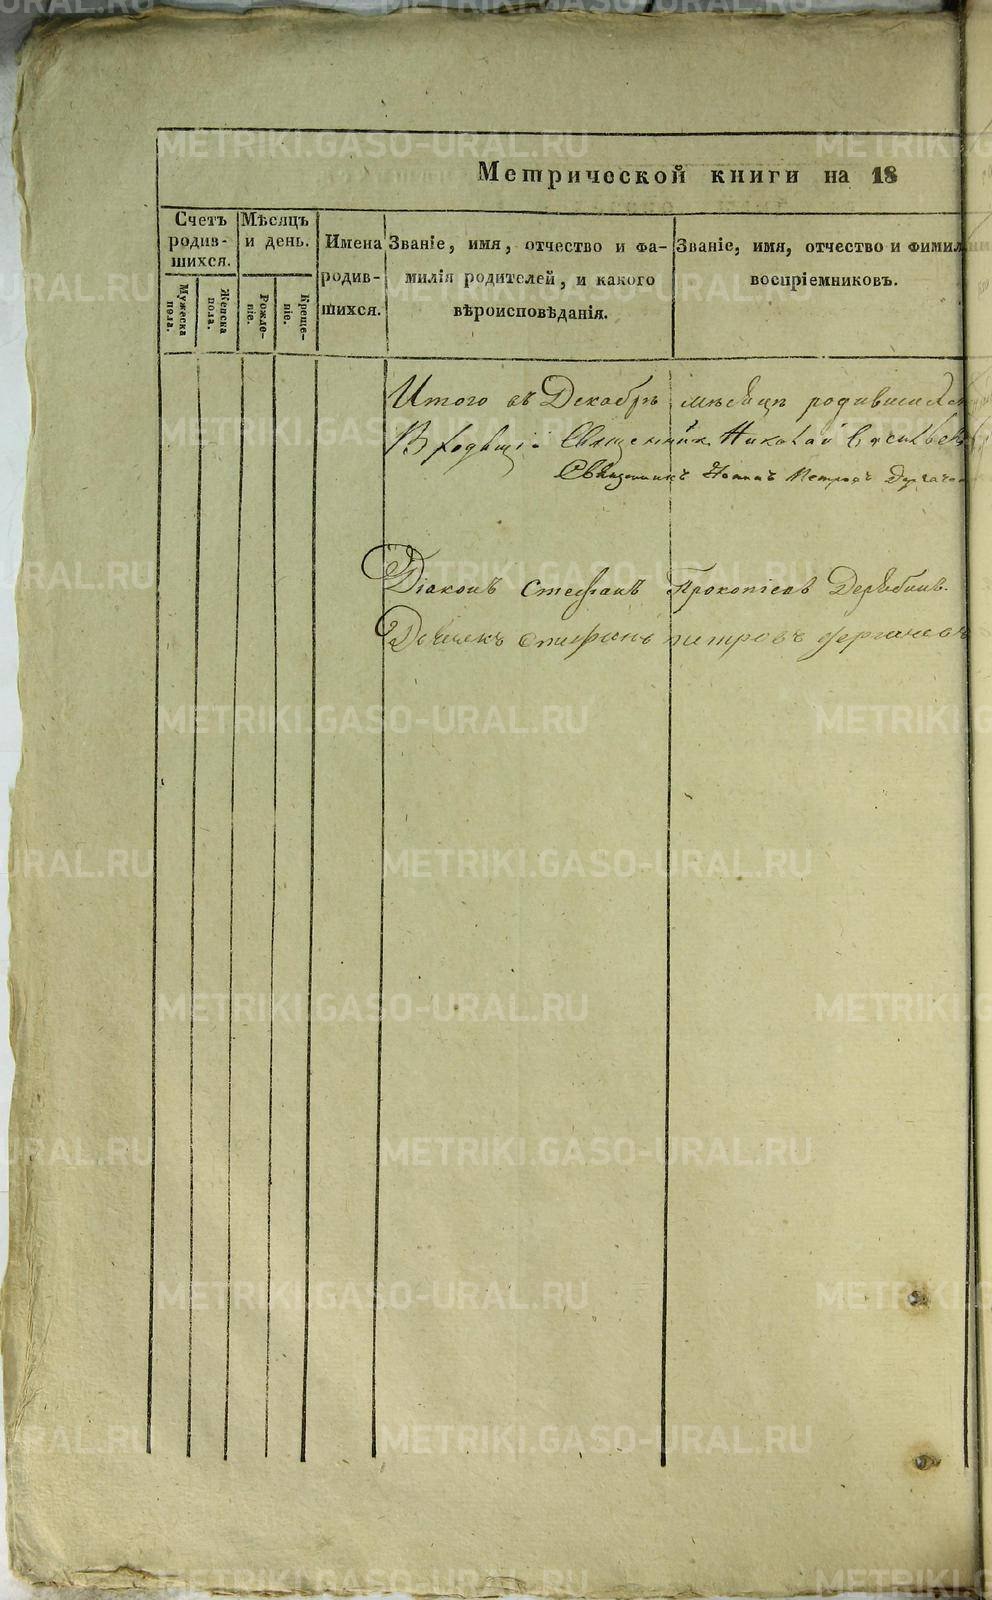 Метрической книги на 18
Счетъ родив-шихся.
Мѣсяцъ и день.
Имена родив-шихся.
Званіе, имя, отчество и фа-
милія родителей, и какого
вѣроисповѣданія.
Званіе, имя, отчество и фимил
воспріемниковъ.
Мужеска пола.
Женска пола.
Рожде-ніе.
Креще-ніе.
Итого въ Декабрѣ мѣсяцѣ родившихся
Священник Николай Василье
Священникъ Іоаннъ Петровъ
Діаконъ Стефанъ Прокопіевъ Дерябинъ.
Дьячекъ Стефанъ петровъ
METRIKI.GASO-URAL.RU